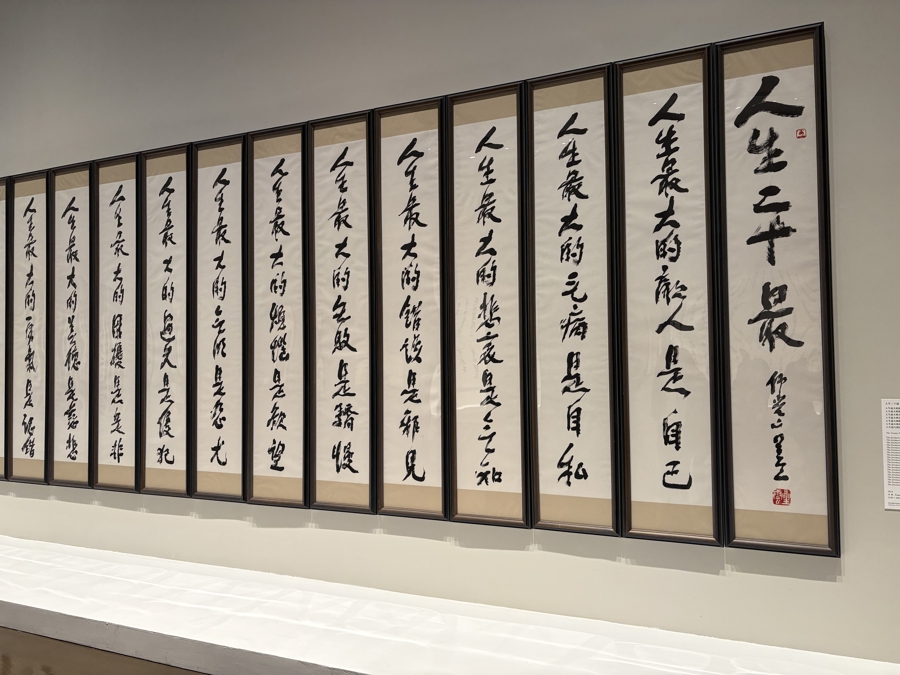 人生二十最
佛光山星云
人生最大的敵人是自己
人生最大的毛病是自私
人生最大的悲哀是无知
人生最大的錯誤是邪見
人生最大的失敗是驕慢
人生最大的煩惱是欲望
人生最大的无明是怨尤
人生最大的過失是侵犯
人生最大的困擾是是非
人生最大的美德是慈悲
人生最大的勇氣是認錯